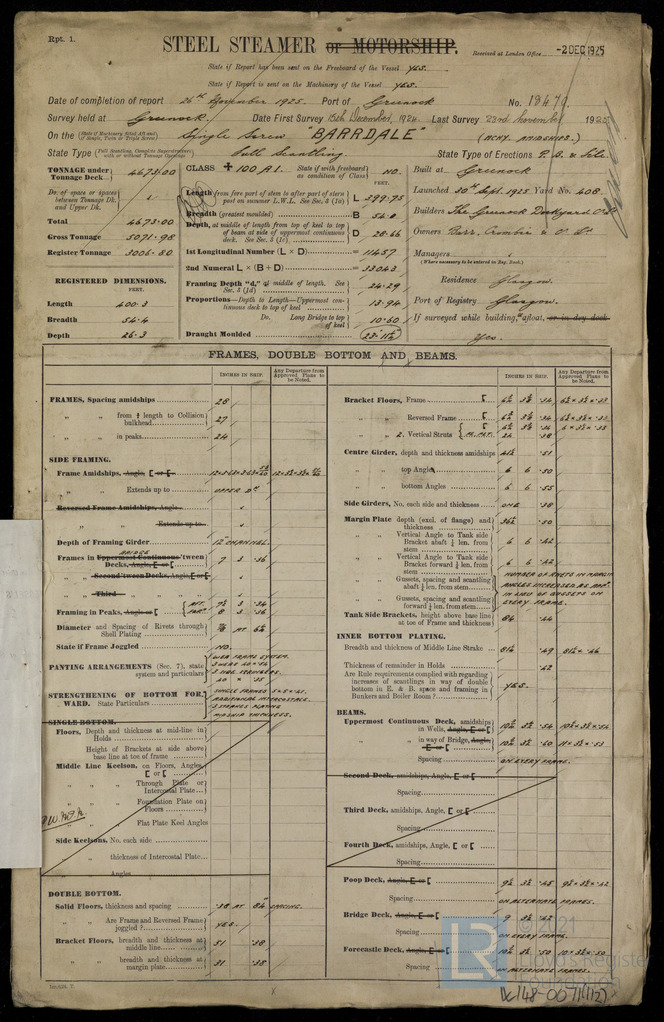 Rpt. 1.
STEEL STEAMER or MOTORSHIP.
Received at London Office -2 DEC 1925
State if Report has been sent on the Freeboard of the Vessel YES.
State if Report is sent on the Machinery of the Vessel YES.
Date of completion of report 26th November 1925. Port of Greenock No. 18479.
Survey held at Greenock. Date First Survey 15th December, 1924. Last Survey 23rd November 1925
On the (State if Machinery fitted Aft and if Single, Twin or Triple Screw) Single Screw "BARRDALE" (MCHY. AMIDSHIPS.)
State Type (Full Scantling, Complete Superstructure with or without Tonnage Openings) Full Scantling State Type of Erections P. B. & Fcle.
TONNAGE under Tonnage Deck 4673.00
Do. of space or spaces between Tonnage Dk. and Upper Dk.
Total 4673.00
Gross Tonnage 5071.98
Register Tonnage 3006.80
REGISTERED DIMENSIONS.
FEET.
Length 400.3
Breadth 54.4
Depth 26.3
CLASS + 100 A1. State if with freeboard as condition of Class NO.
FEET.
Length from fore part of stem to after part of stern post on summer L.W.L. See Sec. 3 (1a) L 399.75
Breadth (greatest moulded) B 54.0
Depth, at middle of length from top of keel to top of beam at side of uppermost continuous deck. See Sec. 3 (1c) D 28.66
1st Longitudinal Number (L × D) = 11457
2nd Numeral L × (B + D) = 33043
Framing Depth "d," at middle of length. See Sec. 3 (1d) 24.29
Proportions—Depth to Length—Uppermost continuous deck to top of keel 13.94
Do. Long Bridge to top of keel 10.60
Draught Moulded 23' 11½"
Built at Greenock
Launched 30th Sept. 1925 Yard No. 408.
Builders The Greenock Dockyard Co Ld
Owners Barr, Crombie & Co. Ld
Managers
(Where necessary to be entered in Reg. Book.)
Residence Glasgow.
Port of Registry Glasgow.
If surveyed while building, afloat, or in dry dock
Yes.
FRAMES, DOUBLE BOTTOM AND BEAMS.
INCHES IN SHIP.
Any Departure from Approved Plans to be Noted.
INCHES IN SHIP.
Any Departure from Approved Plans to be Noted.
FRAMES, Spacing amidships 28
" " from ⅕ length to Collision bulkhead 27
" " in peaks 24
SIDE FRAMING.
Frame Amidships, Angle, [ or [
" " Extends up to UPPER DK
Reversed Frame Amidships, Angle
" " Extends up to
Depth of Framing Girder 12" CHANNEL.
Frames in Uppermost Continuous 'tween Decks, Angle, [ or [ BRIDGE 7 3 .36
" Second 'tween Decks, Angle, [ or [
" Third
Framing in Peaks, Angle or [
Diameter and Spacing of Rivets through Shell Plating
State if Frame Joggled NO.
PANTING ARRANGEMENTS (Sec. 7), state system and particulars WEB FRAME SYSTEM.
STRENGTHENING OF BOTTOM FORWARD. State Particulars
SINGLE BOTTOM.
Floors, Depth and thickness at mid-line in Holds
Height of Brackets at side above base line at toe of frame
Middle Line Keelson, on Floors, Angles, [ or [
" " Through Plate or Intercostal Plate
" " Foundation Plate on Floors
" " Flat Plate Keel Angles
Side Keelsons, No. each side
" " thickness of Intercostal Plate
" Angles
DOUBLE BOTTOM.
Solid Floors, thickness and spacing .38 AT 84 SPACING.
" " Are Frame and Reversed Frame joggled? YES.
Bracket Floors, breadth and thickness at middle line 31 .38
" " breadth and thickness at margin plate 31 .38
Bracket Floors, Frame
" " Reversed Frame
" " 2. Vertical Struts
Centre Girder, depth and thickness amidships
" " top Angles 6 6 .50
" " bottom Angles 6 6 .55
Side Girders, No. each side and thickness ONE .38
Margin Plate depth (excl. of flange) and thickness
" " Vertical Angle to Tank side Bracket abaft ¼ len. from stem 6 6 .42
" " Vertical Angle to Tank side Bracket forward ¼ len. from stem 6 6 .42
" " Gussets, spacing and scantling abaft ¼ len. from stem
" " Gussets, spacing and scantling forward ¼ len. from stem
NUMBER OF RIVETS IN MARGIN ANGLES INCREASED AS APPD. IN LIEU OF GUSSETS ON EVERY FRAME.
Tank Side Brackets, height above base line at toe of Frame and thickness 84 .44
INNER BOTTOM PLATING.
Breadth and thickness of Middle Line Strake
Thickness of remainder in Holds .42
Are Rule requirements complied with regarding increases of scantlings in way of double bottom in E. & B. space and framing in Bunkers and Boiler Room? YES.
BEAMS.
Uppermost Continuous Deck, amidships in Wells, Angle, [ or [
" " in way of Bridge, Angle, [ or [
Spacing ON EVERY FRAME.
Second Deck, amidships, Angle, [ or [
Spacing
Third Deck, amidships, Angle, [ or [
Spacing
Fourth Deck, amidships, Angle, [ or [
Spacing
Poop Deck, Angle, [ or [
Spacing ON ALTERNATE FRAMES.
Bridge Deck, Angle, [ or [
Spacing ON EVERY FRAME.
Forecastle Deck, Angle, [ or [
Spacing ON ALTERNATE FRAMES.
© 2021
LR
Lloyd's Register
Foundation